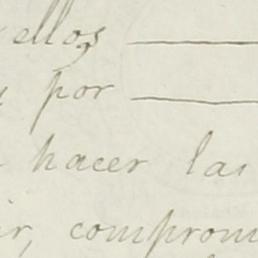 ellos
por
hacer las
ir, comprom